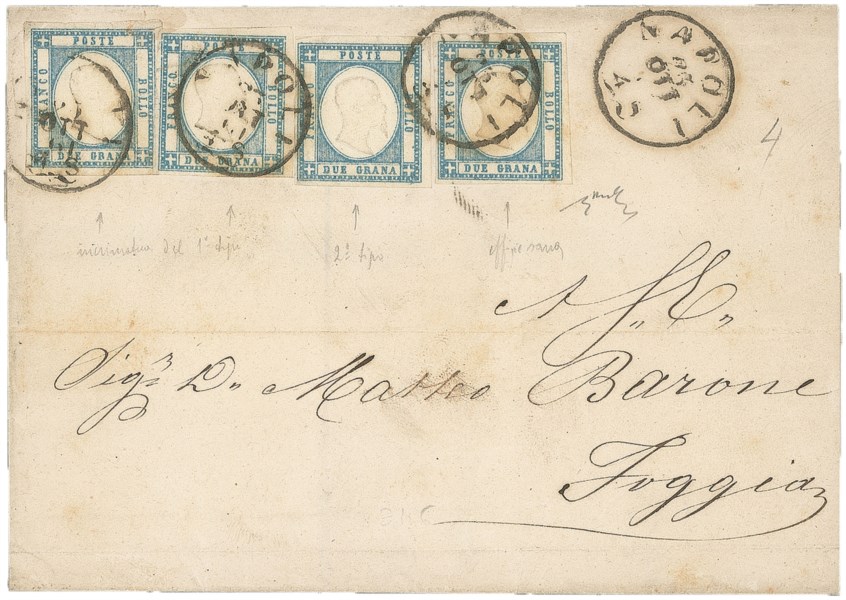 POSTE
FRANCO
BOLLO
DUE GRANA
POSTE
FRANCO
BOLLO
DUE GRANA
POSTE
FRANCO
BOLLO
DUE GRANA
POSTE
FRANCO
BOLLO
DUE GRANA
NAPOLI
NAPOLI
NAPOLI
OTT
4
del 1º tipo
2º tipo
A S. E.
Sigr. D. Matteo Barone
Foggia